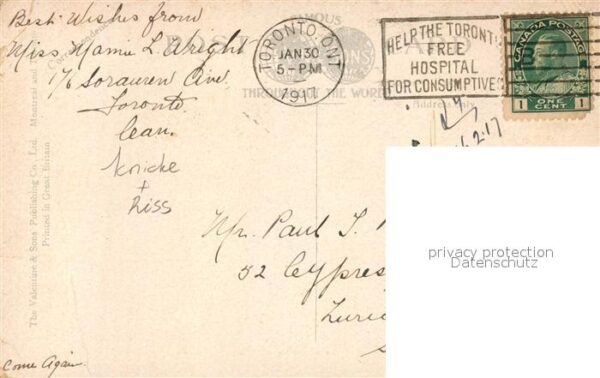 Best Wishes from
Miss Mamie L. Wright
76 Sorauren Ave.
Toronto
Can.
Knicke
+
Riss
Correspondence
POST CARD
FAMOUS
THROUGHOUT THE WORLD
Address Only
TORONTO, ONT
JAN 30
5 - PM
1917
HELP THE TORONTO
FREE
HOSPITAL
FOR CONSUMPTIVES
CANADA POSTAGE
1 ONE CENT 1
2.17
Mr. Paul T.
52 Cypres
Zuric
privacy protection
Datenschutz
The Valentine & Sons Publishing Co., Ltd. Montreal and
Printed in Great Britain
Come Again.